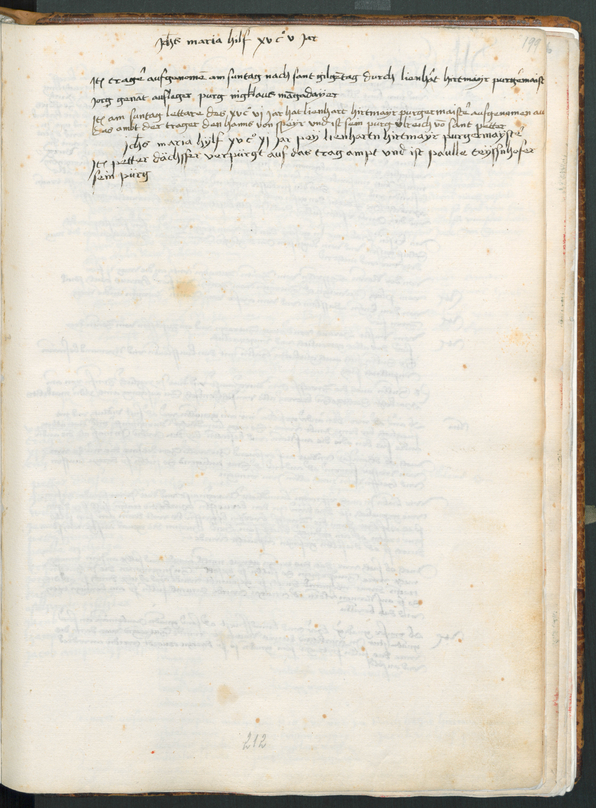 Jhs maria hilf xvc v Jar
199
Itē trager aufgenomē am suntag nach sant gilgētag durch lienhāt hirtmayr purgermaist
Jorg ganāt aufleger purg nichlaus
Itē am suntag lettare des xvc vi Jar hat lienhart hirtmayr purgermaister aufgenomen an
das ambt der trager den hanns von und ist sein purg ulreich vō sant petter
Jhs maria hylf xvc xi Jar pey lienhartn hirtmayr purgermayster
Itē petter verpürgt auf das trag ampt und ist paulle teyssnhofer
sein pürg
212